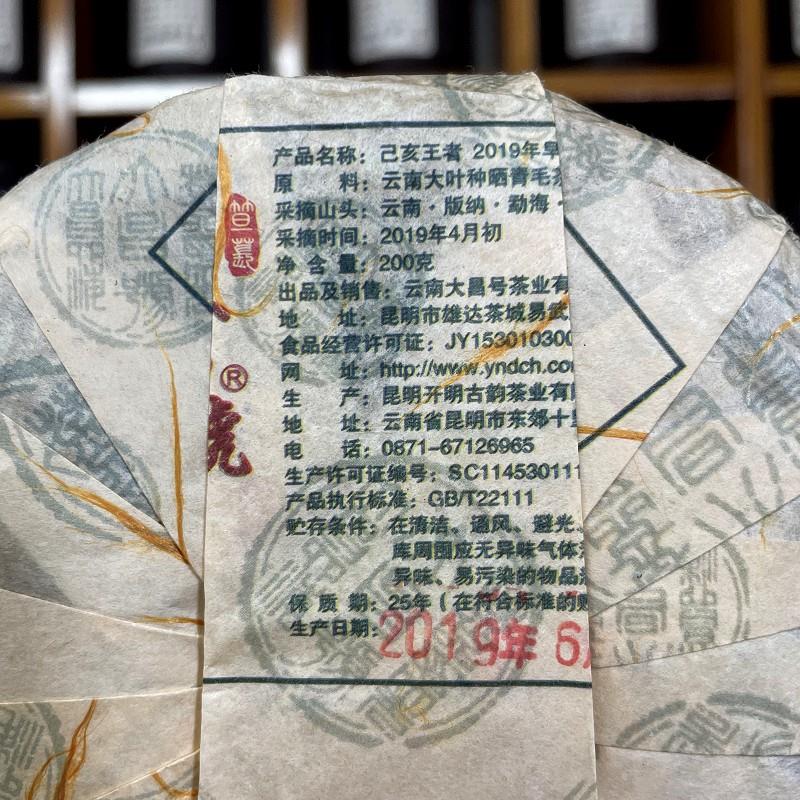 产品名称：己亥王者 2019年早
原 料：云南大叶种晒青毛茶
采摘山头：云南·版纳·勐海·
采摘时间：2019年4月初
净 含 量：200克
出品及销售：云南大昌号茶业有
地 址：昆明市雄达茶城易武
食品经营许可证：JY153010300
网 址：http://www.yndch.com
生 产：昆明开明古韵茶业有限
地 址：云南省昆明市东郊十里
电 话：0871-67126965
生产许可证编号：SC114530111
产品执行标准：GB/T22111
贮存条件：在清洁、通风、避光、
库周围应无异味气体
异味、易污染的物品
保 质 期：25年（在符合标准的贮
生产日期：2019年 6月
®
號